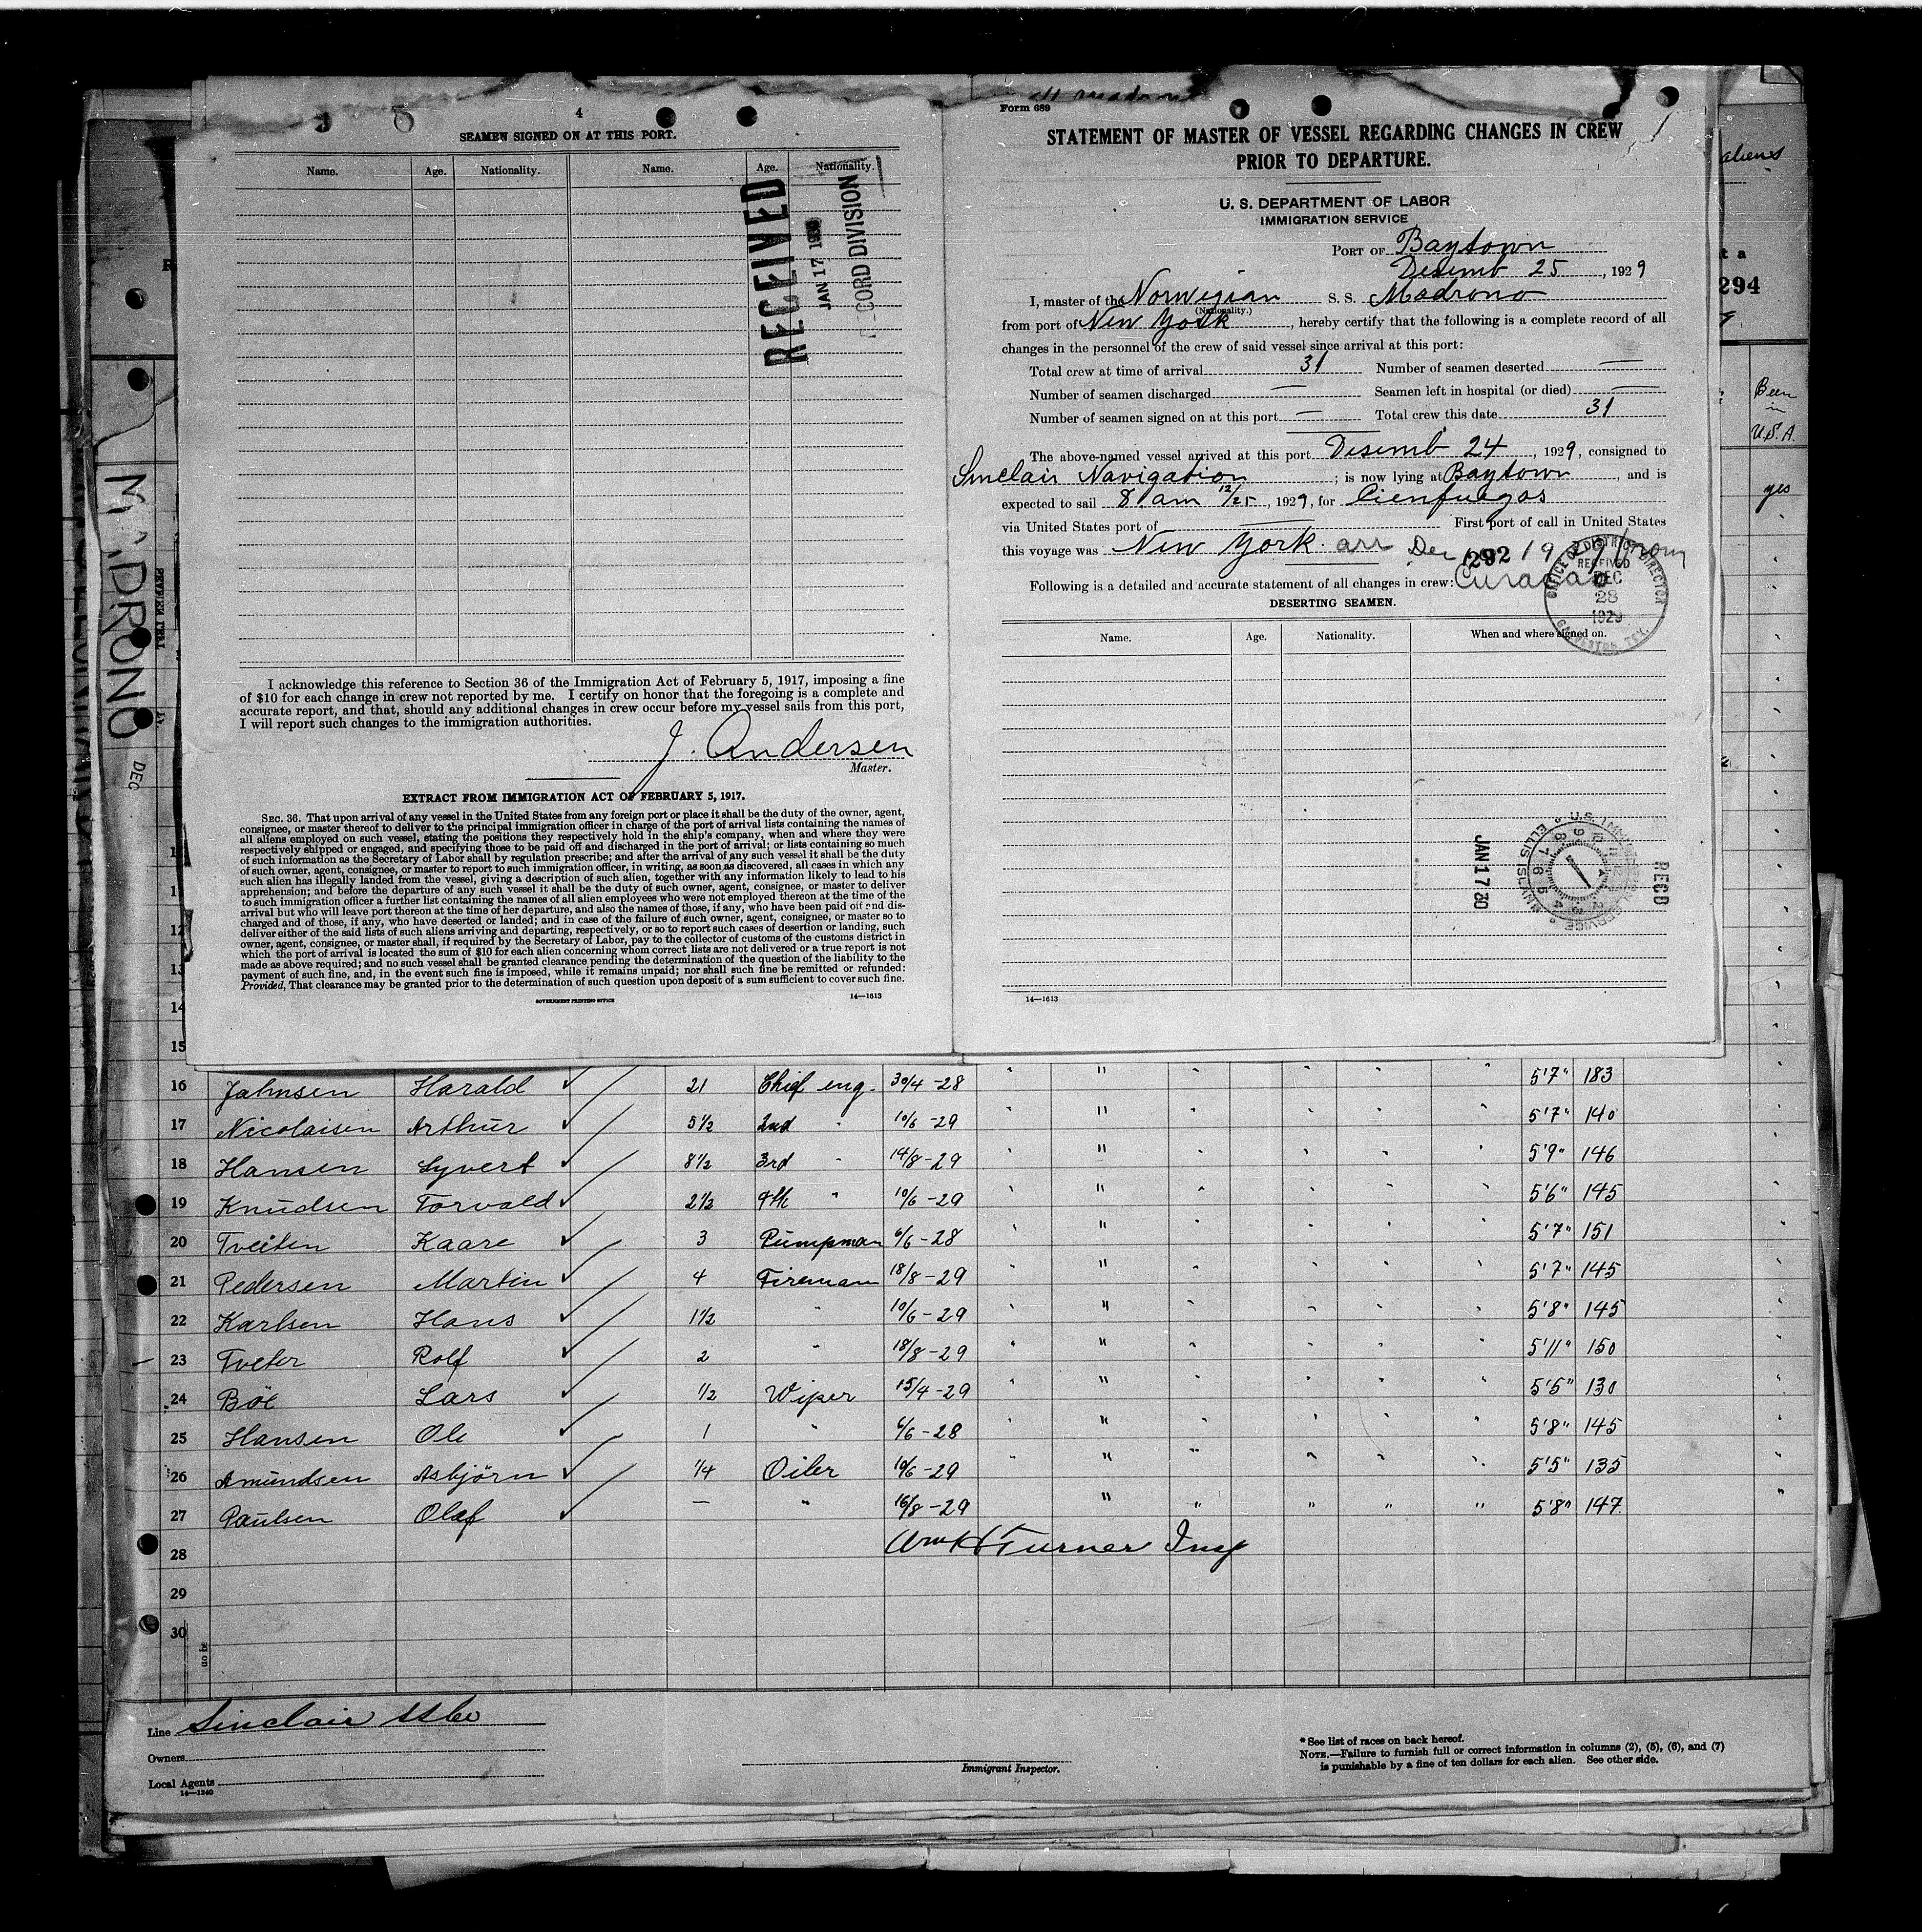 4
SEAMEN SIGNED ON AT THIS PORT.
Name. Age. Nationality. Name. Age. Nationality.
RECEIVED
JAN 17 1930
RECORD DIVISION
I acknowledge this reference to Section 36 of the Immigration Act of February 5, 1917, imposing a fine
of $10 for each change in crew not reported by me. I certify on honor that the foregoing is a complete and
accurate report, and that, should any additional changes in crew occur before my vessel sails from this port,
I will report such changes to the immigration authorities.
J. Andersen
Master.
EXTRACT FROM IMMIGRATION ACT OF FEBRUARY 5, 1917.
SEC. 36. That upon arrival of any vessel in the United States from any foreign port or place it shall be the duty of the owner, agent,
consignee, or master thereof to deliver to the principal immigration officer in charge of the port of arrival lists containing the names of
all aliens employed on such vessel, stating the positions they respectively hold in the ship's company, when and where they were
respectively shipped or engaged, and specifying those to be paid off and discharged in the port of arrival; or lists containing so much
of such information as the Secretary of Labor shall by regulation prescribe; and after the arrival of any such vessel it shall be the duty
of such owner, agent, consignee, or master to report to such immigration officer, in writing, as soon as discovered, all cases in which any
such alien has illegally landed from the vessel, giving a description of such alien, together with any information likely to lead to his
apprehension; and before the departure of any such vessel it shall be the duty of such owner, agent, consignee, or master to deliver
to such immigration officer a further list containing the names of all alien employees who were not employed thereon at the time of the
arrival but who will leave port thereon at the time of her departure, and also the names of those, if any, who have been paid off and dis-
charged and of those, if any, who have deserted or landed; and in case of the failure of such owner, agent, consignee, or master so to
deliver either of the said lists of such aliens arriving and departing, respectively, or so to report such cases of desertion or landing, such
owner, agent, consignee, or master, shall, if required by the Secretary of Labor, pay to the collector of customs of the customs district in
which the port of arrival is located the sum of $10 for each alien concerning whom correct lists are not delivered or a true report is not
made as above required; and no such vessel shall be granted clearance pending the determination of the question of the liability to the
payment of such fine, and, in the event such fine is imposed, while it remains unpaid; nor shall such fine be remitted or refunded:
Provided, That clearance may be granted prior to the determination of such question upon deposit of a sum sufficient to cover such fine.
GOVERNMENT PRINTING OFFICE 14—1613
Form 689
STATEMENT OF MASTER OF VESSEL REGARDING CHANGES IN CREW
PRIOR TO DEPARTURE.
U. S. DEPARTMENT OF LABOR
IMMIGRATION SERVICE
PORT OF Baytown
Desemb 25, 1929
I, master of the Norwegian S. S. Madrono
(Nationality.)
from port of New York, hereby certify that the following is a complete record of all
changes in the personnel of the crew of said vessel since arrival at this port:
Total crew at time of arrival 31 Number of seamen deserted —
Number of seamen discharged — Seamen left in hospital (or died) —
Number of seamen signed on at this port — Total crew this date 31
The above-named vessel arrived at this port Desemb 24, 1929, consigned to
Sinclair Navigation; is now lying at Baytown, and is
expected to sail 8 am 12/25, 1929, for Cienfuegos
via United States port of — First port of call in United States
this voyage was New York arr Dec 19 from
292
Following is a detailed and accurate statement of all changes in crew: Curacao
OFFICE OF DISTRICT DIRECTOR
RECEIVED
DEC
28
1929
GALVESTON, TEX.
DESERTING SEAMEN.
Name. Age. Nationality. When and where signed on.
JAN 17 30
REC'D
U.S. IMMIGRATION SERVICE ELLIS ISLAND
14—1613
aliens
294
Been
in
U.S.A.
yes
MADRONO
DEC
11
12
13
14
15
16 Jahnsen Harald ✓ 21 Chief eng. 30/4-28 " " " " " " 5'7" 183 "
17 Nicolaisen Arthur ✓ 5 1/2 2nd " 10/6-29 " " " " " " 5'7" 140 "
18 Hansen Syvert ✓ 8 1/2 3rd " 14/8-29 " " " " " " 5'9" 146 "
19 Knudsen Torvald ✓ 2 1/2 4th " 10/6-29 " " " " " " 5'6" 145 "
20 Tveiten Kaare ✓ 3 Pumpman 6/6-28 " " " " " " 5'7" 151 "
21 Pedersen Martin ✓ 4 Fireman 18/8-29 " " " " " " 5'7" 145 "
22 Karlsen Hans ✓ 1 1/2 " 10/6-29 " " " " " " 5'8" 145 "
23 Tveter Rolf ✓ 2 " 18/8-29 " " " " " " 5'11" 150 "
24 Böe Lars ✓ 1/2 Wiper 15/4-29 " " " " " " 5'5" 130 "
25 Hansen Ole ✓ 1 " 6/6-28 " " " " " " 5'8" 145 "
26 Amundsen Asbjörn ✓ 1/4 Oiler 10/6-29 " " " " " " 5'5" 135 "
27 Paulsen Olaf ✓ — " 16/8-29 " " " " " 5'8" 147 "
28 Wm H Turner Insp
29
30
Line Sinclair SS Co
Owners
Local Agents
14—1240
Immigrant Inspector.
* See list of races on back hereof.
NOTE.—Failure to furnish full or correct information in columns (2), (5), (6), and (7)
is punishable by a fine of ten dollars for each alien. See other side.